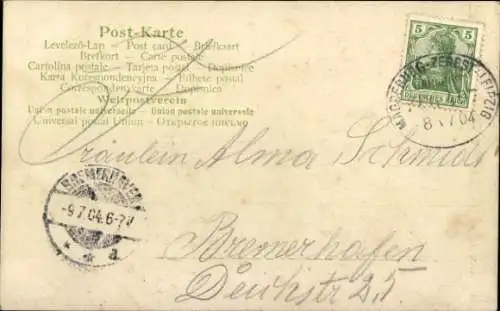 Post-Karte
Levelező-Lap — Post card — Briefkaart
Brefkort — Carte postale
Cartolina postale — Tarjeta postal — Dopisnice
Karta Korespondencyjna — Bilhete postal
Correspondenzkarte — Dopisnica
Weltpostverein
Union postale universelle — Union postale universelle
Universal postal Union — Открытое письмо
5 5
MAGDEBURG-ZERBST-LEIPZIG
8 7 04
Fräulein Alma Schmidt
BREMERHAVEN
-9.7.04.6-7N
* * a
Bremerhafen
Deichstr 25